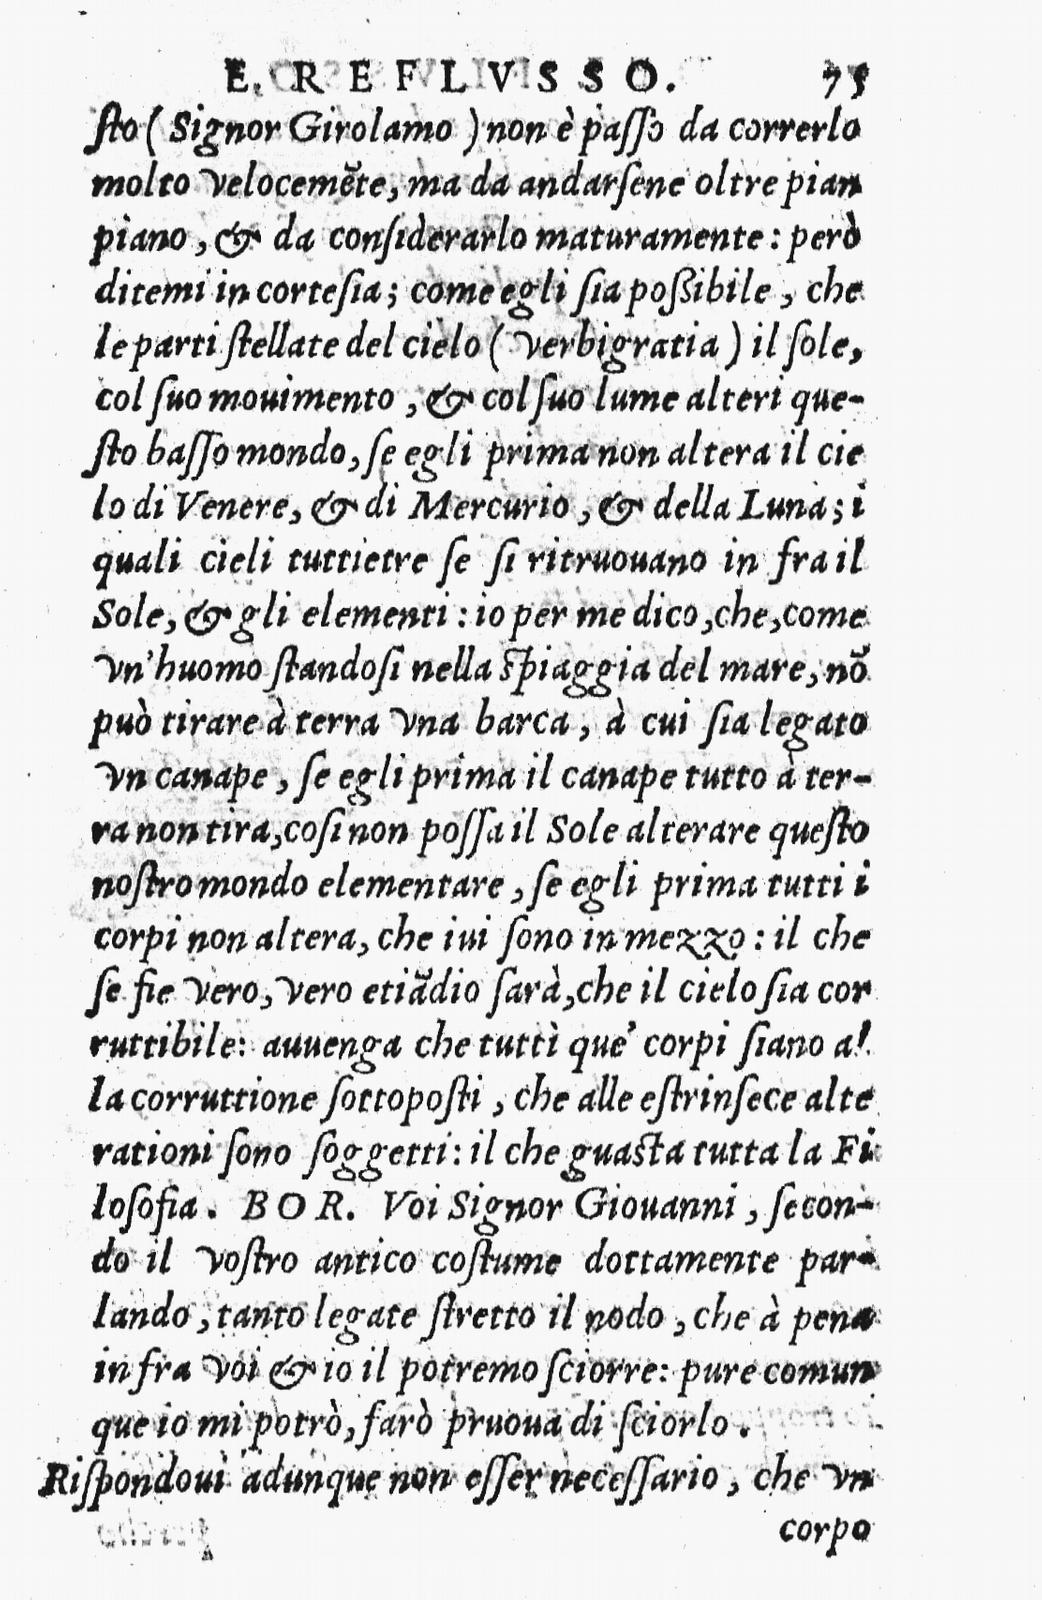 E REFLVSSO. 75
ſto ( Signor Girolamo ) non è paſſo da correrlo
molto velocemẽte, ma da andarſene oltre pian
piano, & da conſiderarlo maturamente: però
ditemi in corteſia; come egli ſia poſsibile, che
le parti ſtellate del cielo ( verbigratia ) il ſole,
col ſuo mouimento, & col ſuo lume alteri que-
ſto baſſo mondo, ſe egli prima non altera il cie
lo di Venere, & di Mercurio, & della Luna; i
quali cieli tuttietre ſe ſi ritruouano in fra il
Sole, & gli elementi: io per me dico, che, come
vn'huomo ſtandoſi nella ſpiaggia del mare, nõ
può tirare à terra vna barca, à cui ſia legato
vn canape, ſe egli prima il canape tutto à ter-
ra non tira, coſi non poſſa il Sole alterare queſto
noſtro mondo elementare, ſe egli prima tutti i
corpi non altera, che iui ſono in mezzo: il che
ſe fie vero, vero etiãdio ſarà, che il cielo ſia cor
ruttibile: auuenga che tutti que' corpi ſiano al
la corruttione ſottopoſti, che alle eſtrinſece alte
rationi ſono ſoggetti: il che guaſta tutta la Fi
loſofia. BOR. Voi Signor Giouanni, ſecon-
do il voſtro antico coſtume dottamente par-
lando, tanto legate ſtretto il nodo, che à pena
in fra voi & io il potremo ſciorre: pure comun
que io mi potrò, farò pruoua di ſciorlo.
Riſpondoui adunque non eſſer neceſſario, che vn
corpo